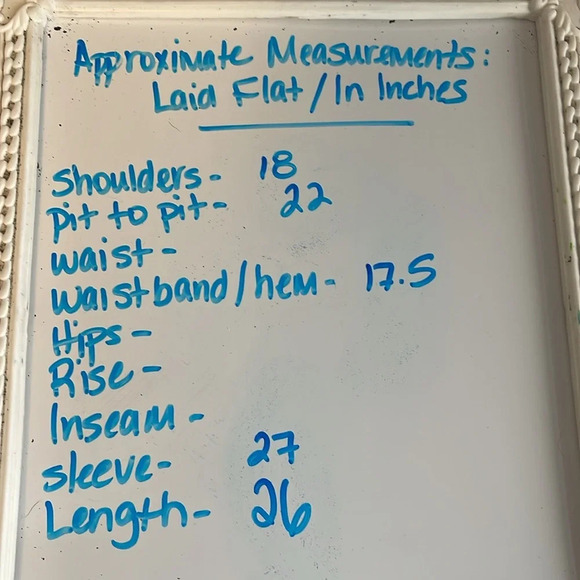 Approximate Measurements:
Laid Flat/In Inches
Shoulders- 18
pit to pit- 22
waist-
waistband/hem- 17.5
Hips-
Rise-
Inseam-
sleeve- 27
Length- 26